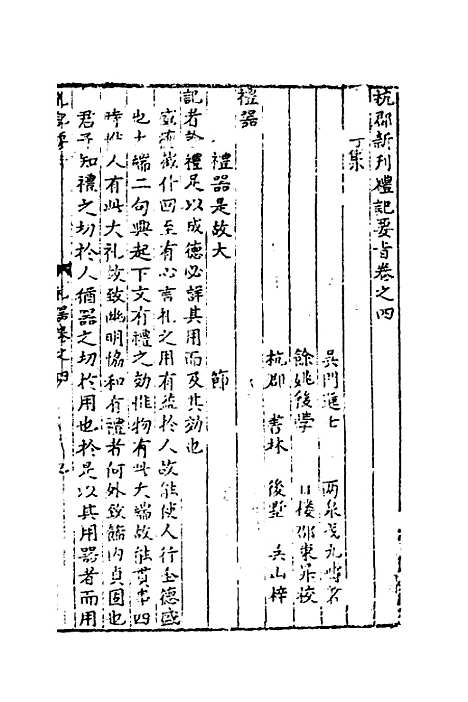 杭郡新刊禮記要旨卷之四
丁集
吳門進士 兩泉戈九疇
餘姚後學 邵東昇校
杭郡 書林 後墅 吳山梓
禮器
禮器是故大 節
記者 禮足以成德必詳其用而及其効也
至有心言礼之用有益於人故能使人行全德盛
也大端二句興起下文有禮之効惟物有此大端故能貫事四
時惟人有此大礼故致幽明協和有禮者何外致餙內貞固也
君子知禮之切於人猶器之切於用也於是以其用器者而用
礼器卷之四